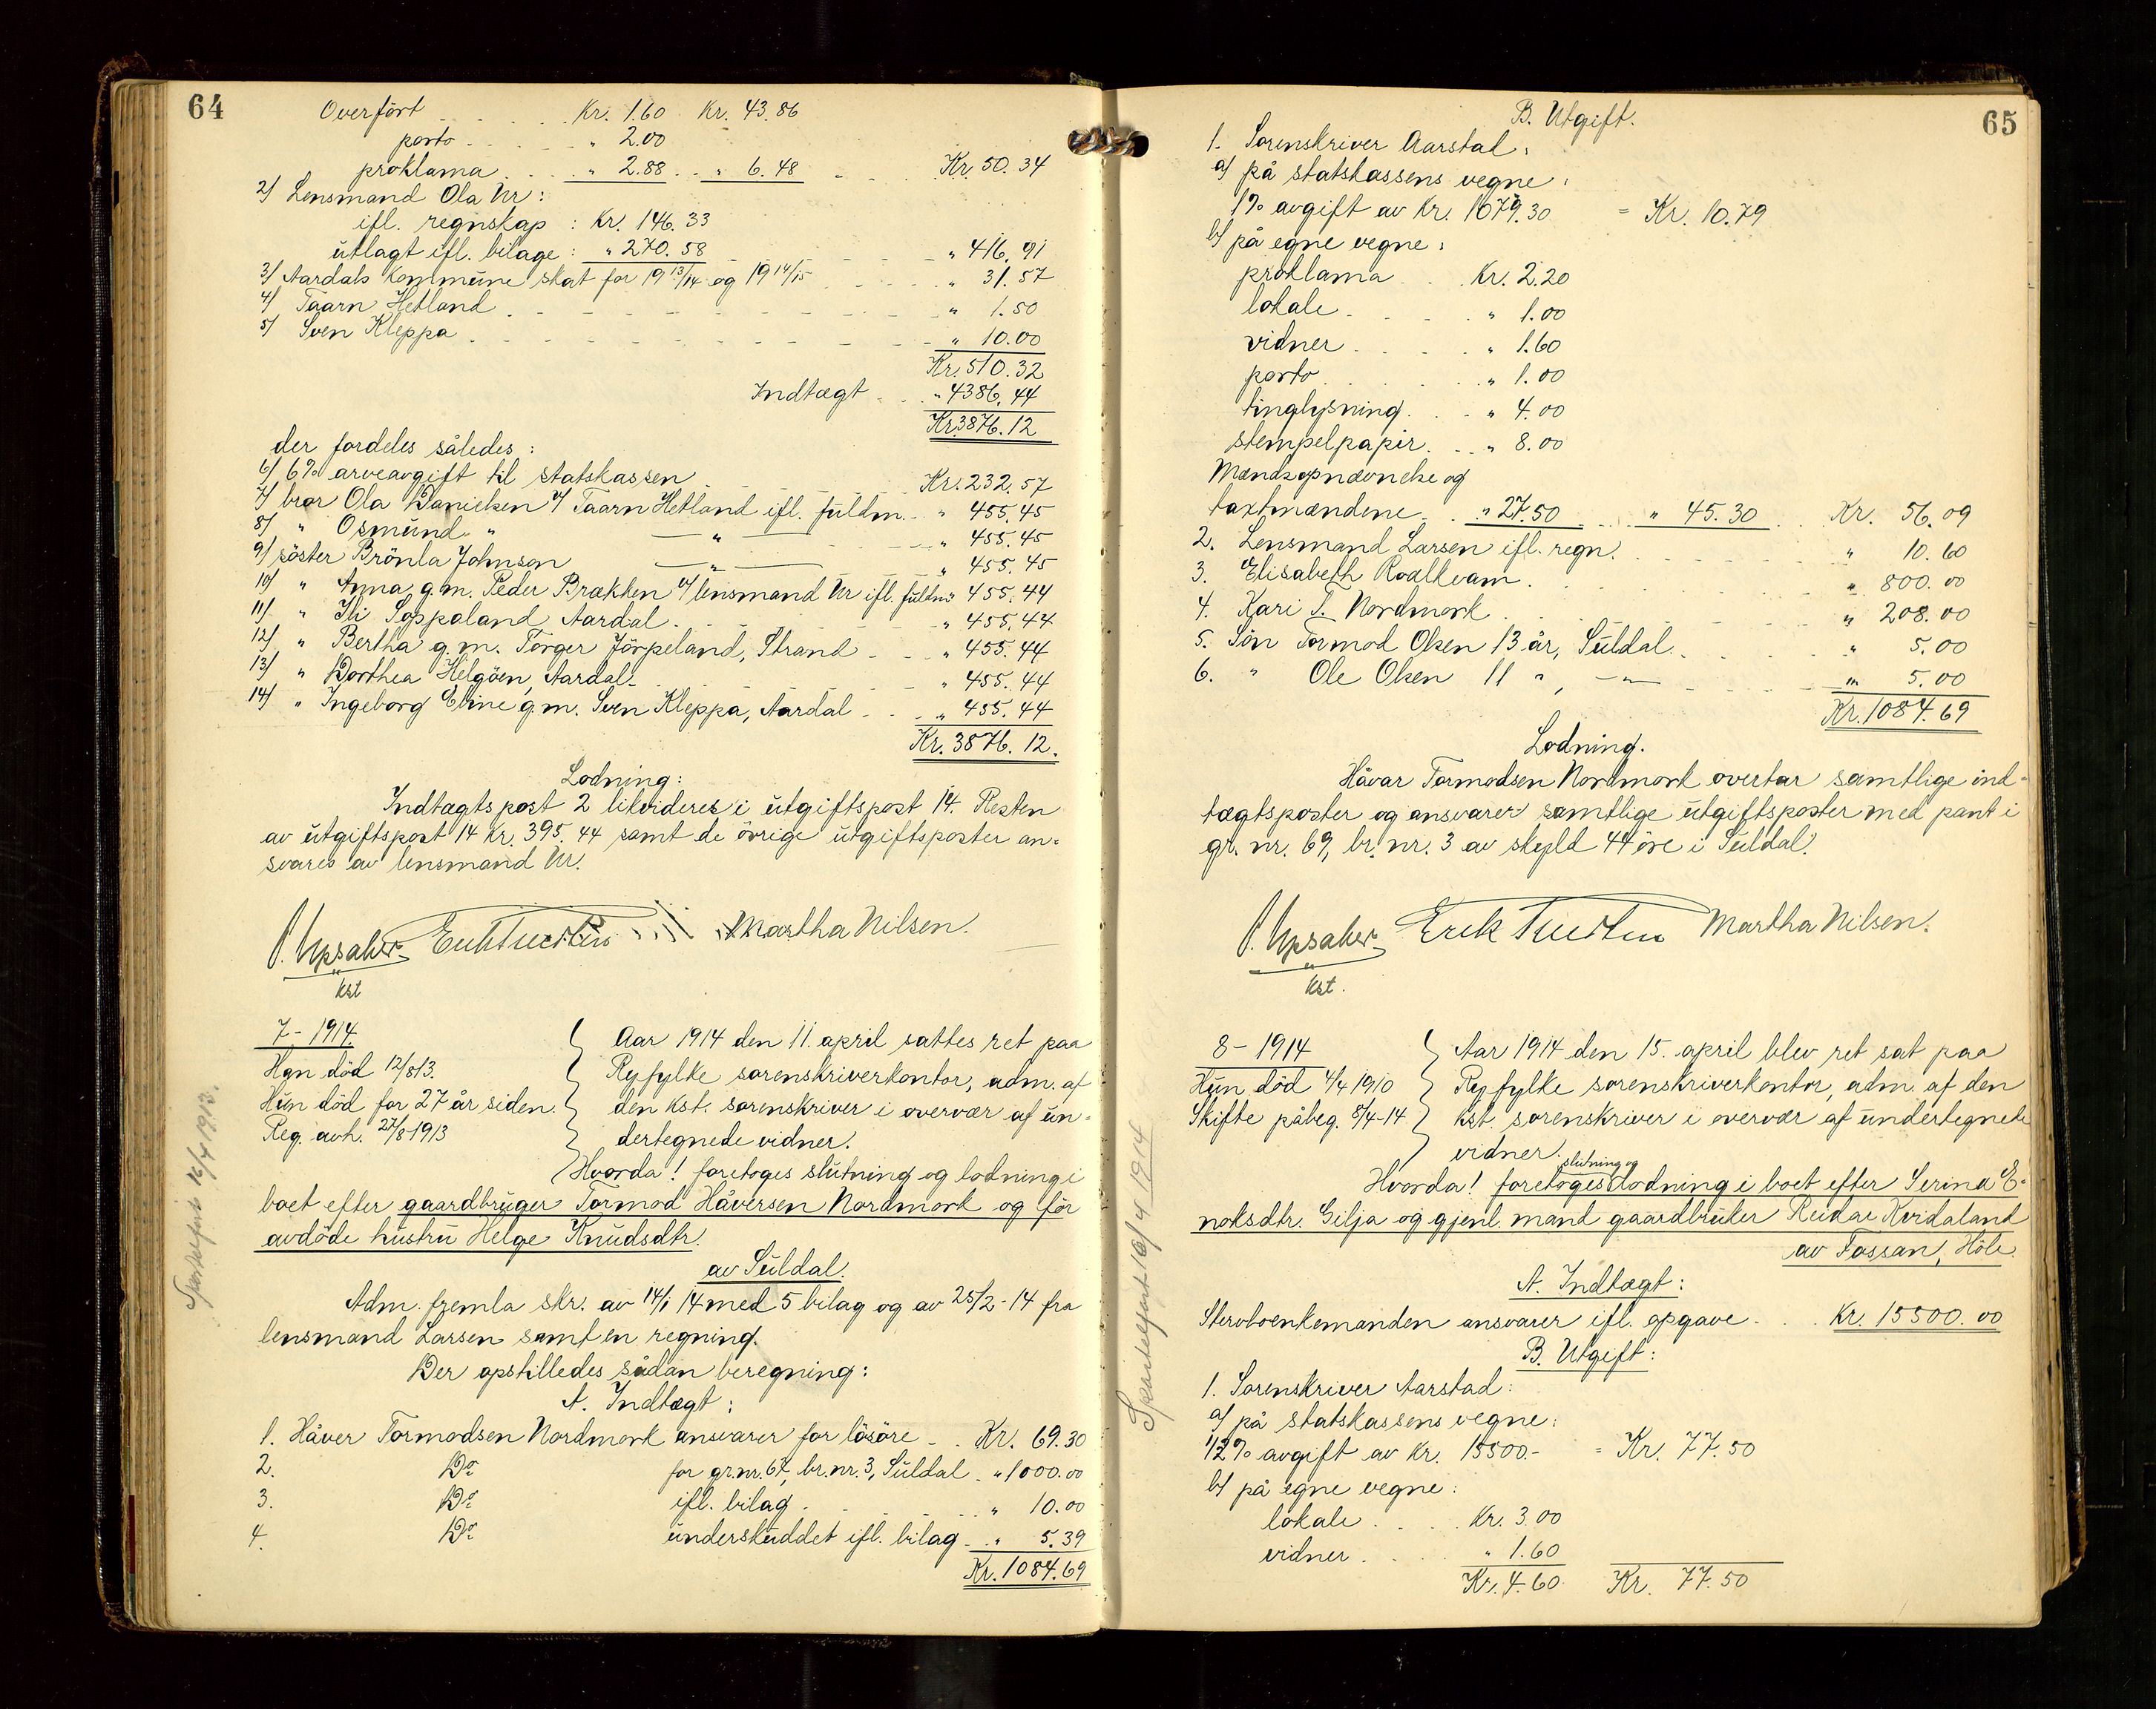 64
Overfört Kr. 1.60 Kr. 43.86
porto " 2.00
proklama " 2.88 " 6.48 Kr. 50.34
2) Lensmand Ola Ur:
ifl. regnskap: Kr. 146.33
utlagt ifl. bilage: " 270.58 " 416.91
3) Aardals kommune skat for 19 13/14 og 19 14/15 " 31.57
4) Taarn Hetland " 1.50
5) Sven Kleppa " 10.00
Kr. 510.32
Indtægt " 4386.44
Kr. 3876.12
der fordeles således:
6) 6% arveavgift til statskassen Kr. 232.57
7) bror Ola Danielsen v/ Taarn Hetland ifl. fuldm. " 455.45
8) " Osmund " — " — " 455.45
9) söster Brönla Johnson — " — " 455.45
10) " Anna g.m. Peder Brækken v/ lensmand Ur ifl. fuldm " 455.44
11) " Ili Soppoland, Aardal " 455.44
12) " Bertha g.m. Torger Jörpeland, Strand " 455.44
13) " Dorthea Helgöen, Aardal " 455.44
14) " Ingeborg Eline g.m. Sven Kleppa, Aardal " 455.44
Kr. 3876.12.
Lodning:
Indtægtspost 2 likvideres i utgiftspost 14. Resten
av utgiftspost 14 Kr. 395.44 samt de övrige utgiftsposter an-
svares av lensmand Ur.
Martha Nilsen.
kst
7 - 1914
Han död 12/8 13.
Hun död for 27 år siden.
Reg. avh. 27/8-1913
Aar 1914 den 11. april sattes ret paa
Ryfylke sorenskriverkontor, adm. af
den kst. sorenskriver i overvær af un-
dertegnede vidner.
Hvorda! foretoges slutning og lodning i
boet efter gaardbruger Tormod Håversen Nordmork og för
avdöde hustru Helge Knudsdtr.
av Suldal.
Adm. fremla skr. av 14/1 14 med 5 bilag og av 25/2-14 fra
lensmand Larsen samt en regning.
Der opstilledes sådan beregning:
A. Indtægt:
1. Håver Tormodsen Nordmork ansvarer for lösöre Kr. 69.30
2. Do for gr.nr. 67, br.nr. 3, Suldal " 1000.00
3. Do ifl. bilag " 10.00
4. Do underskuddet ifl. bilag " 5.39
Kr. 1084.69
65
B. Utgift.
1. Sorenskriver Aarstal:
a) på statskassens vegne:
1% avgift av Kr. 1079.30 = Kr. 10.79
b) på egne vegne:
proklama Kr. 2.20
lokale " 1.00
vidner " 1.60
porto " 1.00
tinglysning " 4.00
stempelpapir " 8.00
Mandsopnævnelse og
taxtmændene " 27.50 " 45.30 Kr. 56.09
2. Lensmand Larsen ifl. regn. " 10.60
3. Elisabeth Roalkvam " 800.00
4. Kari T. Nordmork " 208.00
5. Sön Tormod Olsen 13 år, Suldal " 5.00
6. " Ole Olsen 11 ", — " — " 5.00
Kr. 1084.69
Lodning.
Håvar Tormodsen Nordmork overtar samtlige ind-
tægtsposter og ansvarer samtlige utgiftsposter med pant i
gr. nr. 69, br. nr. 3 av skyld 44 öre i Suldal.
Martha Nilsen.
kst.
8 - 1914
Hun död 4/4 1910
Skifte påbeg. 8/4-14
Aar 1914 den 15. april blev ret sat paa
Ryfylke sorenskriverkontor, adm. af den
kst. sorenskriver i overvær af undertegnede
vidner.
Hvorda! foretoges slutning og lodning i boet efter Serina E-
noksdtr. Gilja og gjenl. mand gaardbruker Reidar Kvidaland
av Fossan, Höle.
A. Indtægt:
Stervboenkemanden ansvarer ifl. opgave Kr. 15500.00
B. Utgift:
1. Sorenskriver Aarstad:
a) på statskassens vegne:
1/2% avgift av Kr. 15500.- = Kr. 77.50
b) på egne vegne:
lokale Kr. 3.00
vidner " 1.60
Kr. 4.60 Kr. 77.50